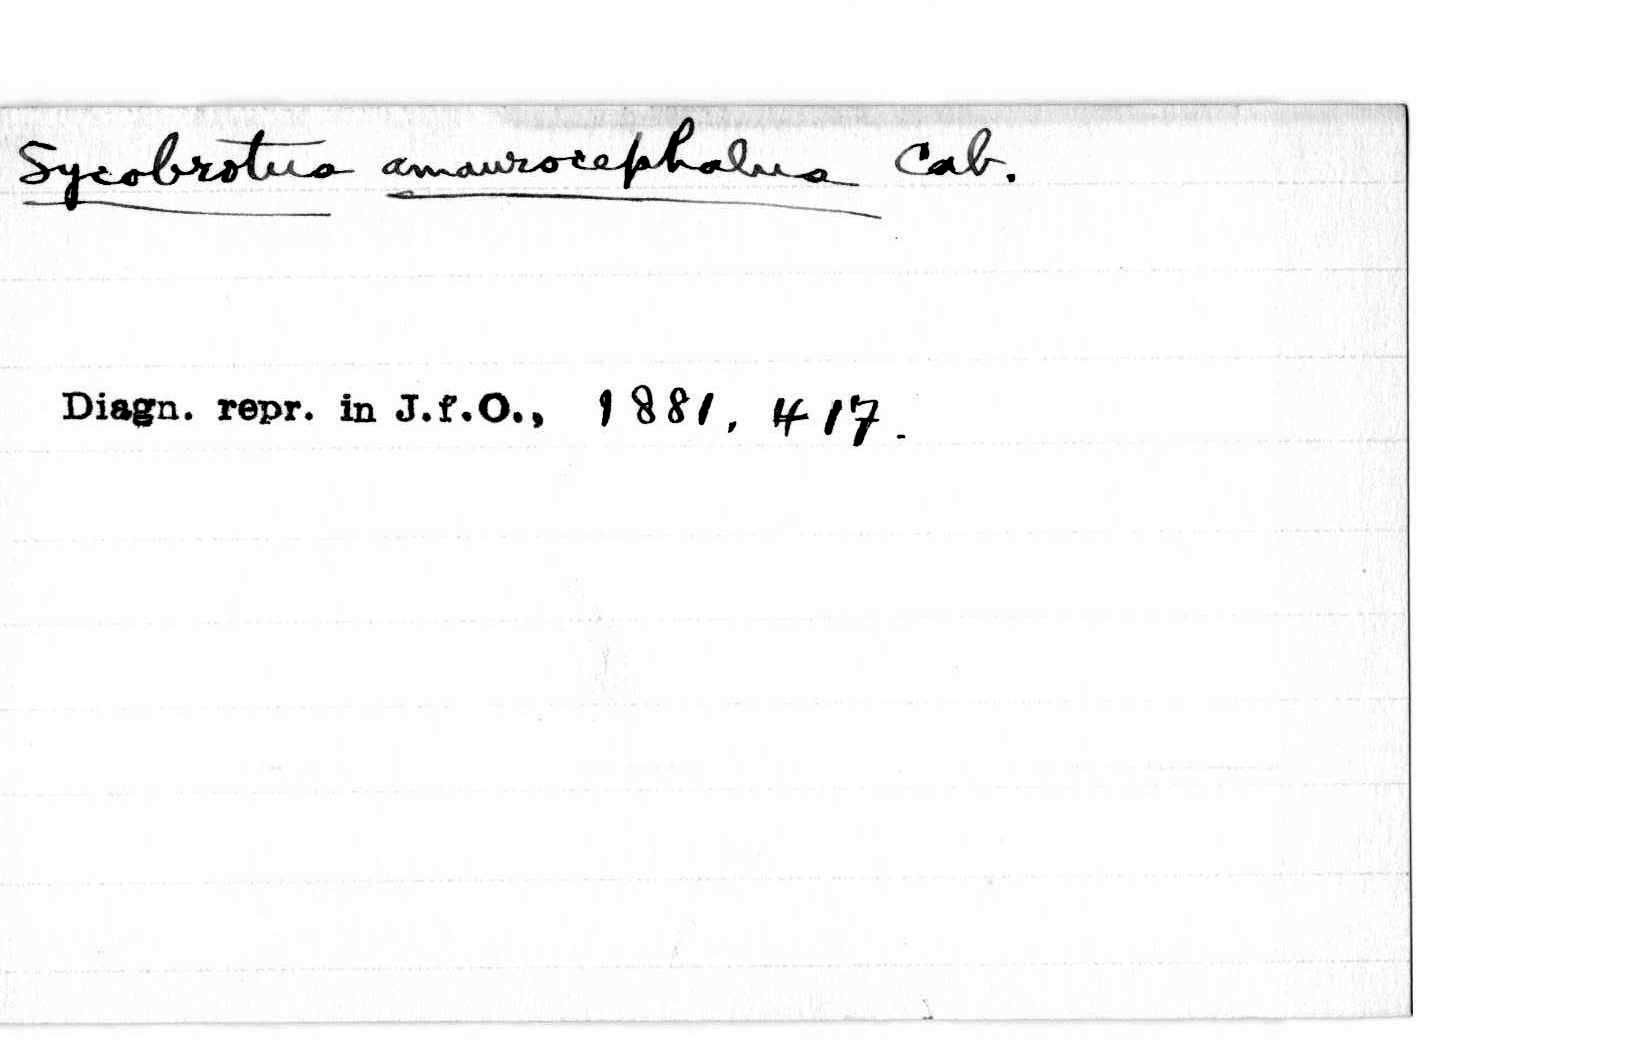 Sycobrotus amaurocephalus Cab.
Diagn. repr. in J.f.O., 1881, 417.